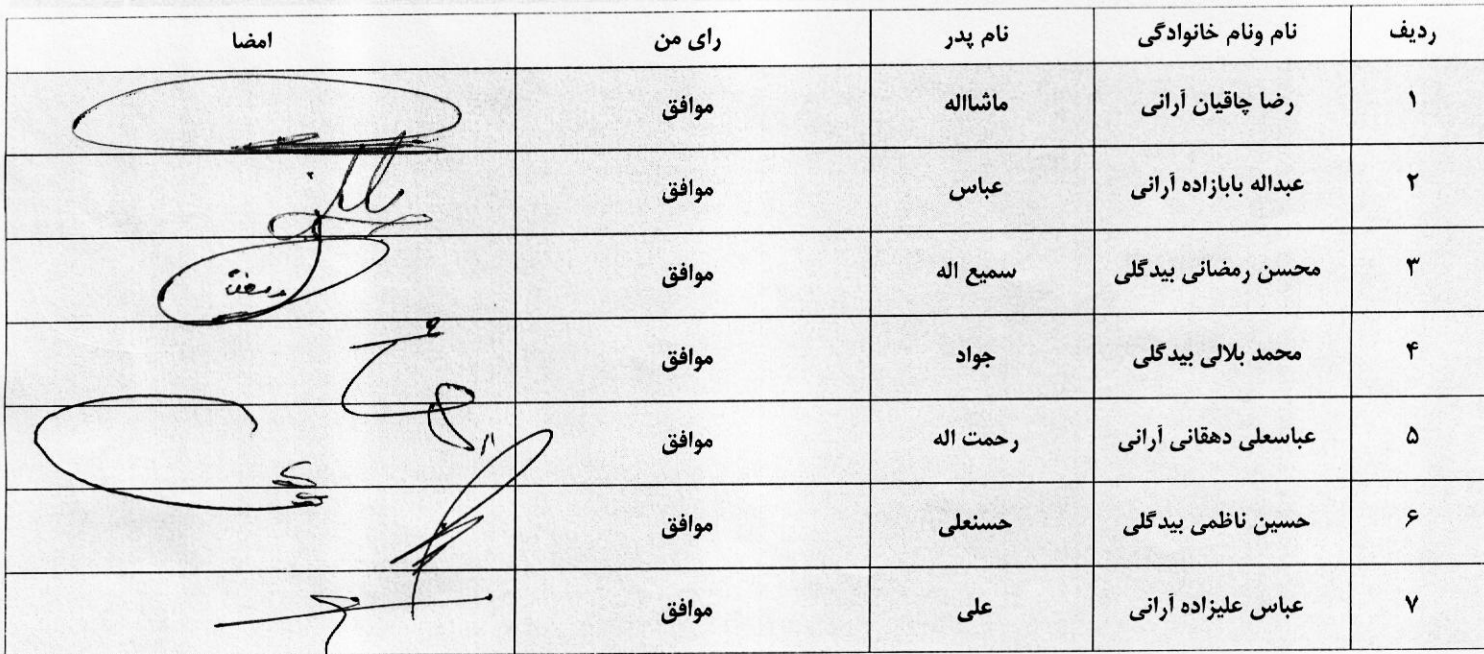 ردیف نام ونام خانوادگی نام پدر رای من امضا
۱ رضا چاقیان آرانی ماشااله موافق
۲ عبداله بابازاده آرانی عباس موافق
۳ محسن رمضانی بیدگلی سمیع اله موافق
۴ محمد بلالی بیدگلی جواد موافق
۵ عباسعلی دهقانی آرانی رحمت اله موافق
۶ حسین ناظمی بیدگلی حسنعلی موافق
۷ عباس علیزاده آرانی علی موافق